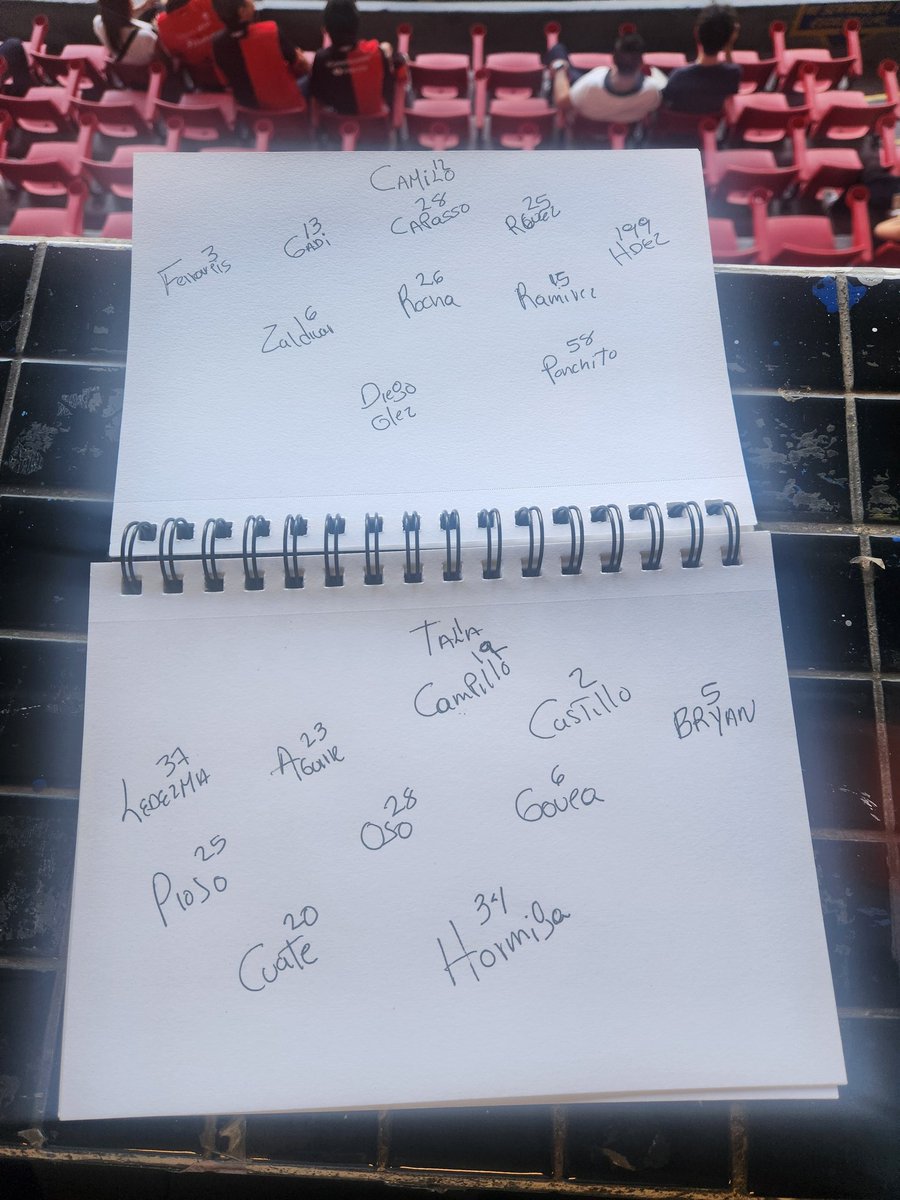 CAMILO
12
3
Ferrareis
13
GADi
28
CARASSO
25
199
HDEZ
6
Zaldivar
26
Rocha
15
Ramirez
Diego
Glez
58
Panchito
TALA
1
19
CAMPillo
37
LEDEZMA
23
AGUIRRE
2
CASTILLO
5
BRYAN
25
PIOJO
28
OSO
6
Govea
20
Cuate
34
Hormiga